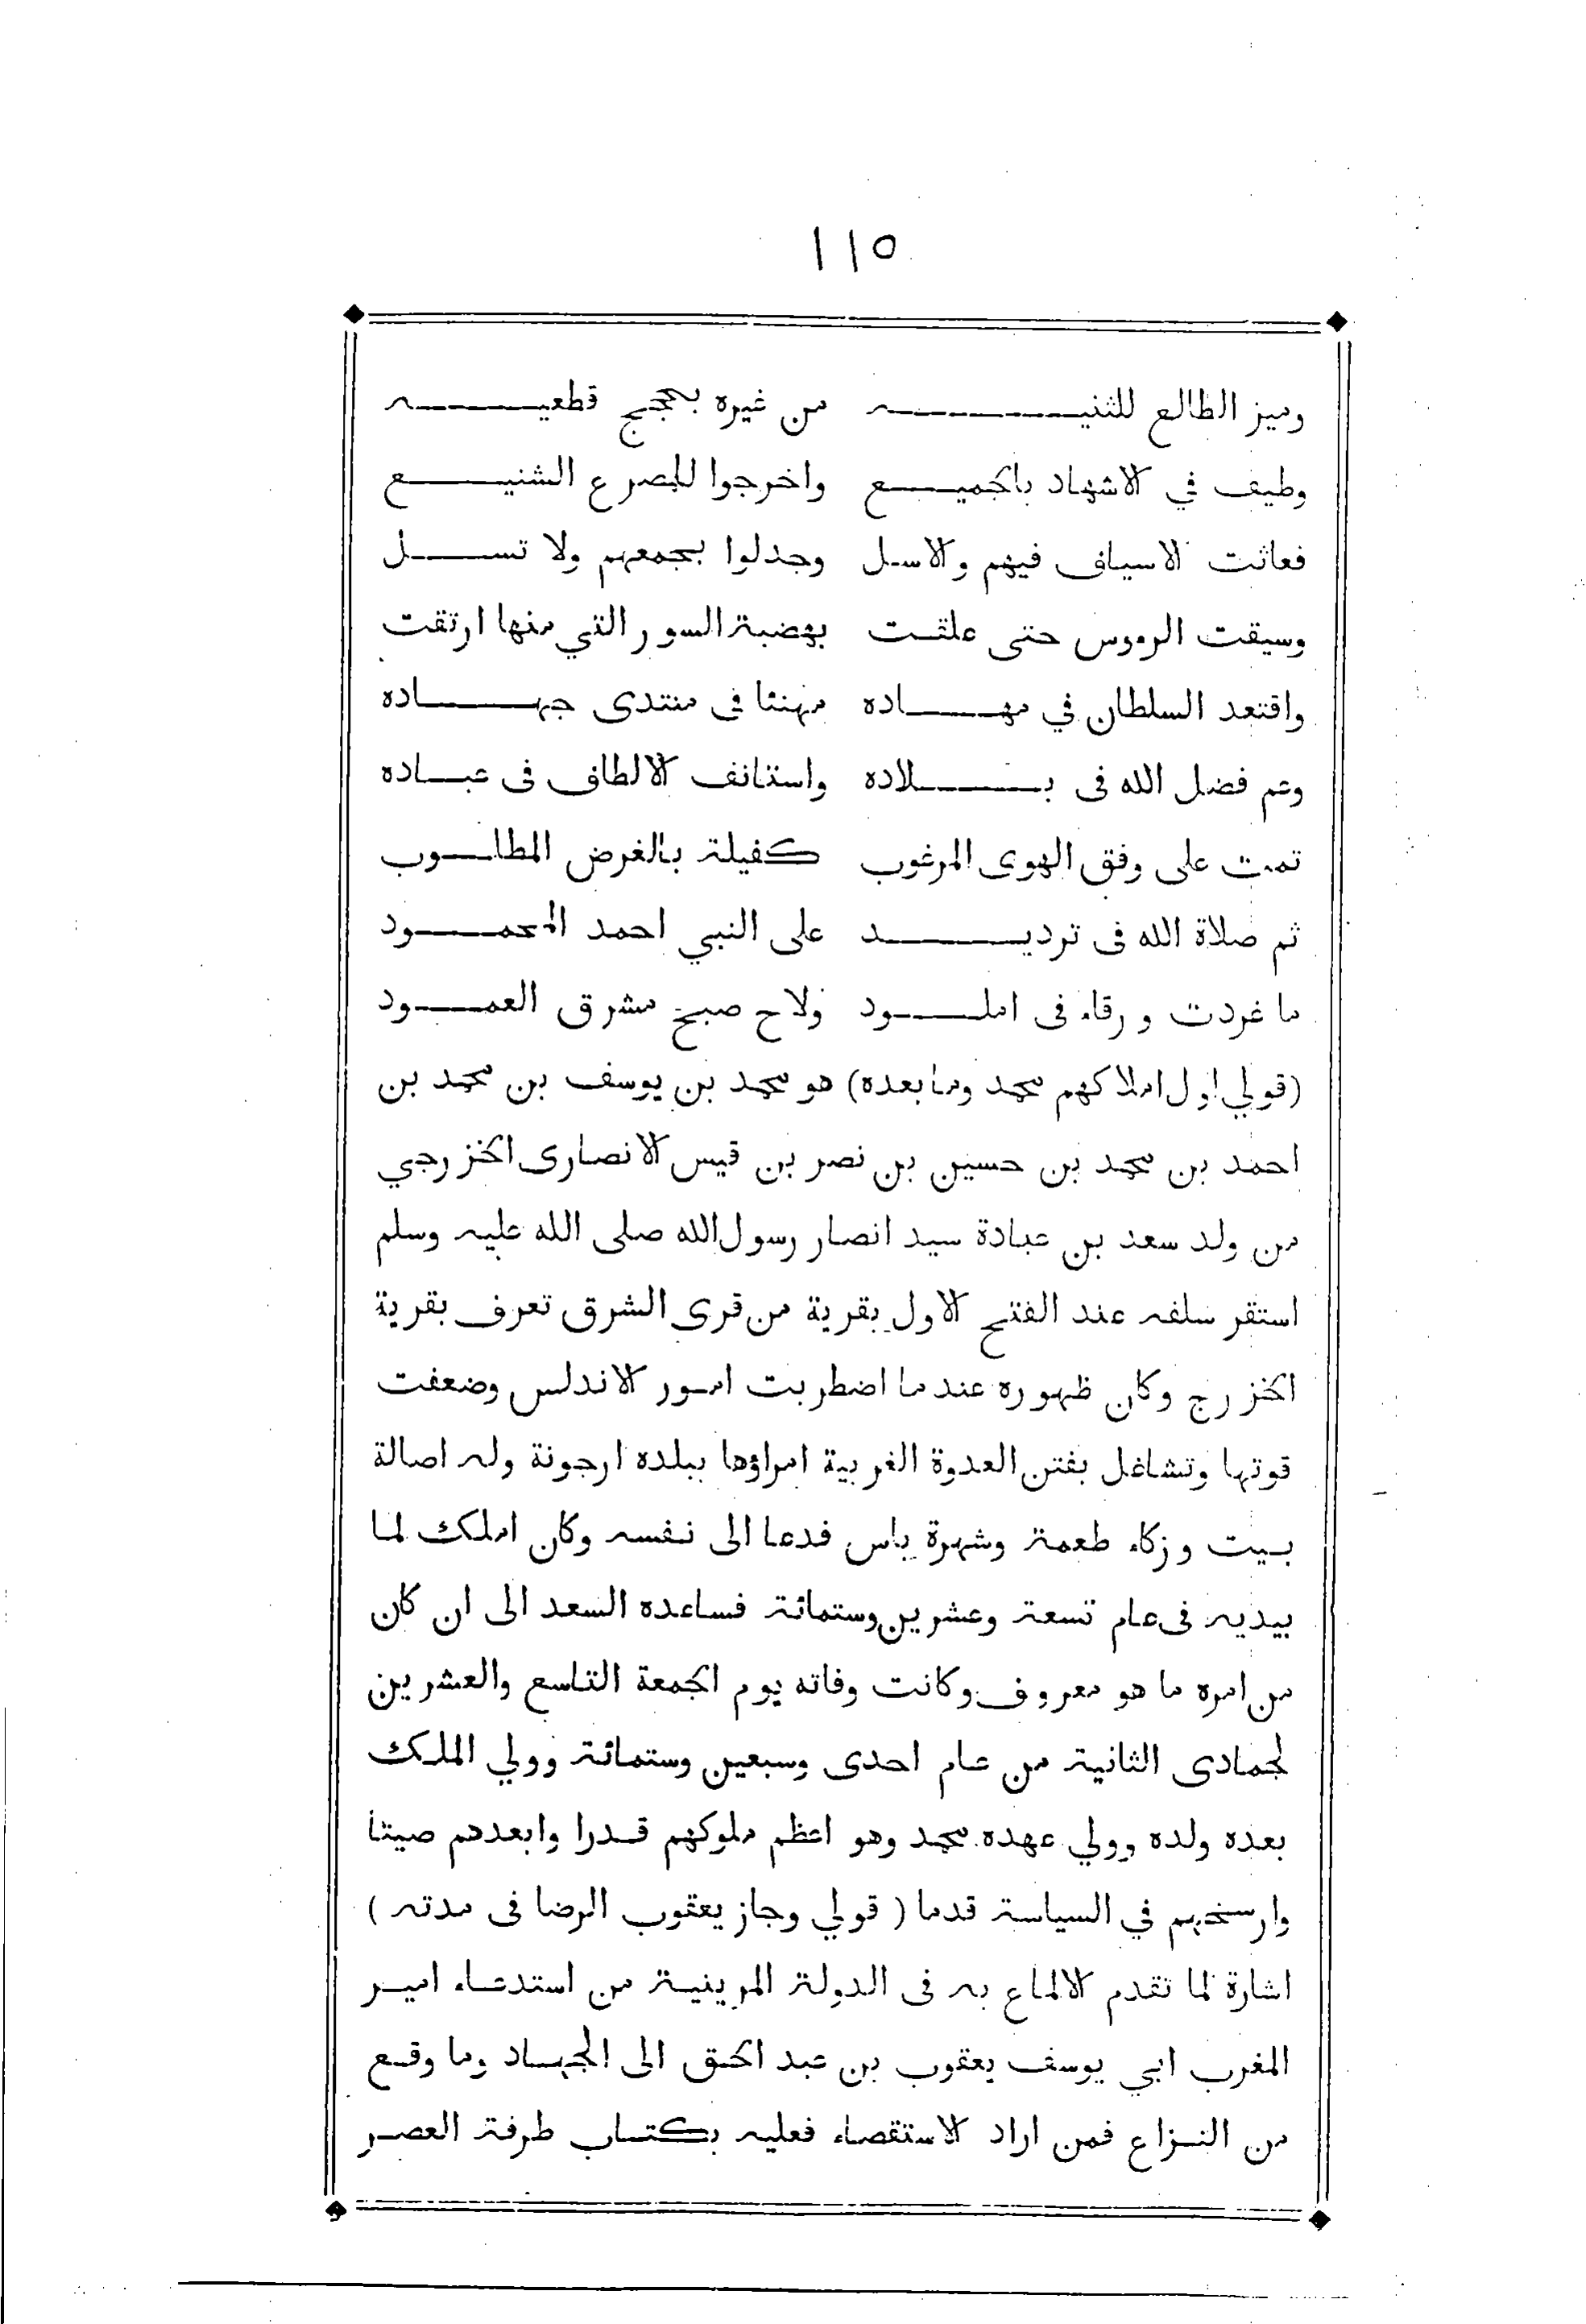 ١١٥
وميز الطالع للثنيه من غيره بحجج قطعيه
وطيف في الاشهاد بالجميع واخرجوا للمصرع الشنيع
فعاثت الاسياف فيهم والاسل وجدلوا بجمعهم ولا تسل
وسيقت الرءوس حتى علقت بهضبة السور التي منها ارتقت
واقتعد السلطان في مهاده مهنئا فى منتدى جهاده
وعم فضل الله فى بلاده واستانف الالطاف فى عباده
تمت على وفق الهوى المرغوب كفيلة بالغرض المطلوب
ثم صلاة الله فى ترديد على النبي احمد المحمود
ما غردت ورقاء فى املود ولاح صبح مشرق العمود
(قولي اول املاكهم محمد وما بعده) هو محمد بن يوسف بن محمد بن
احمد بن محمد بن حسين بن نصر بن قيس الانصارى الخزرجي
من ولد سعد بن عبادة سيد انصار رسول الله صلى الله عليه وسلم
استقر سلفه عند الفتح الاول بقرية من قرى الشرق تعرف بقرية
الخزرج وكان ظهوره عندما اضطربت امور الاندلس وضعفت
قوتها وتشاغل بفتن العدوة الغربية امراؤها ببلده ارجونة وله اصالة
بيت وزكاء طعمة وشهرة باس فدعا الى نفسه وكان املك لما
بيديه فى عام تسعة وعشرين وستمائة فساعده السعد الى ان كان
من امره ما هو معروف وكانت وفاته يوم الجمعة التاسع والعشرين
لجمادى الثانية من عام احدى وسبعين وستمائة وولي الملك
بعده ولده وولي عهده محمد وهو اعظم ملوكهم قدرا وابعدهم صيتا
وارسخهم في السياسة قدما ( قولي وجاز يعقوب الرضا فى مدته )
اشارة لما تقدم الالماع به فى الدولة المرينية من استدعاء امير
المغرب ابي يوسف يعقوب بن عبد الحق الى الجهاد وما وقع
من النزاع فمن اراد الاستقصاء فعليه بكتاب طرفة العصر